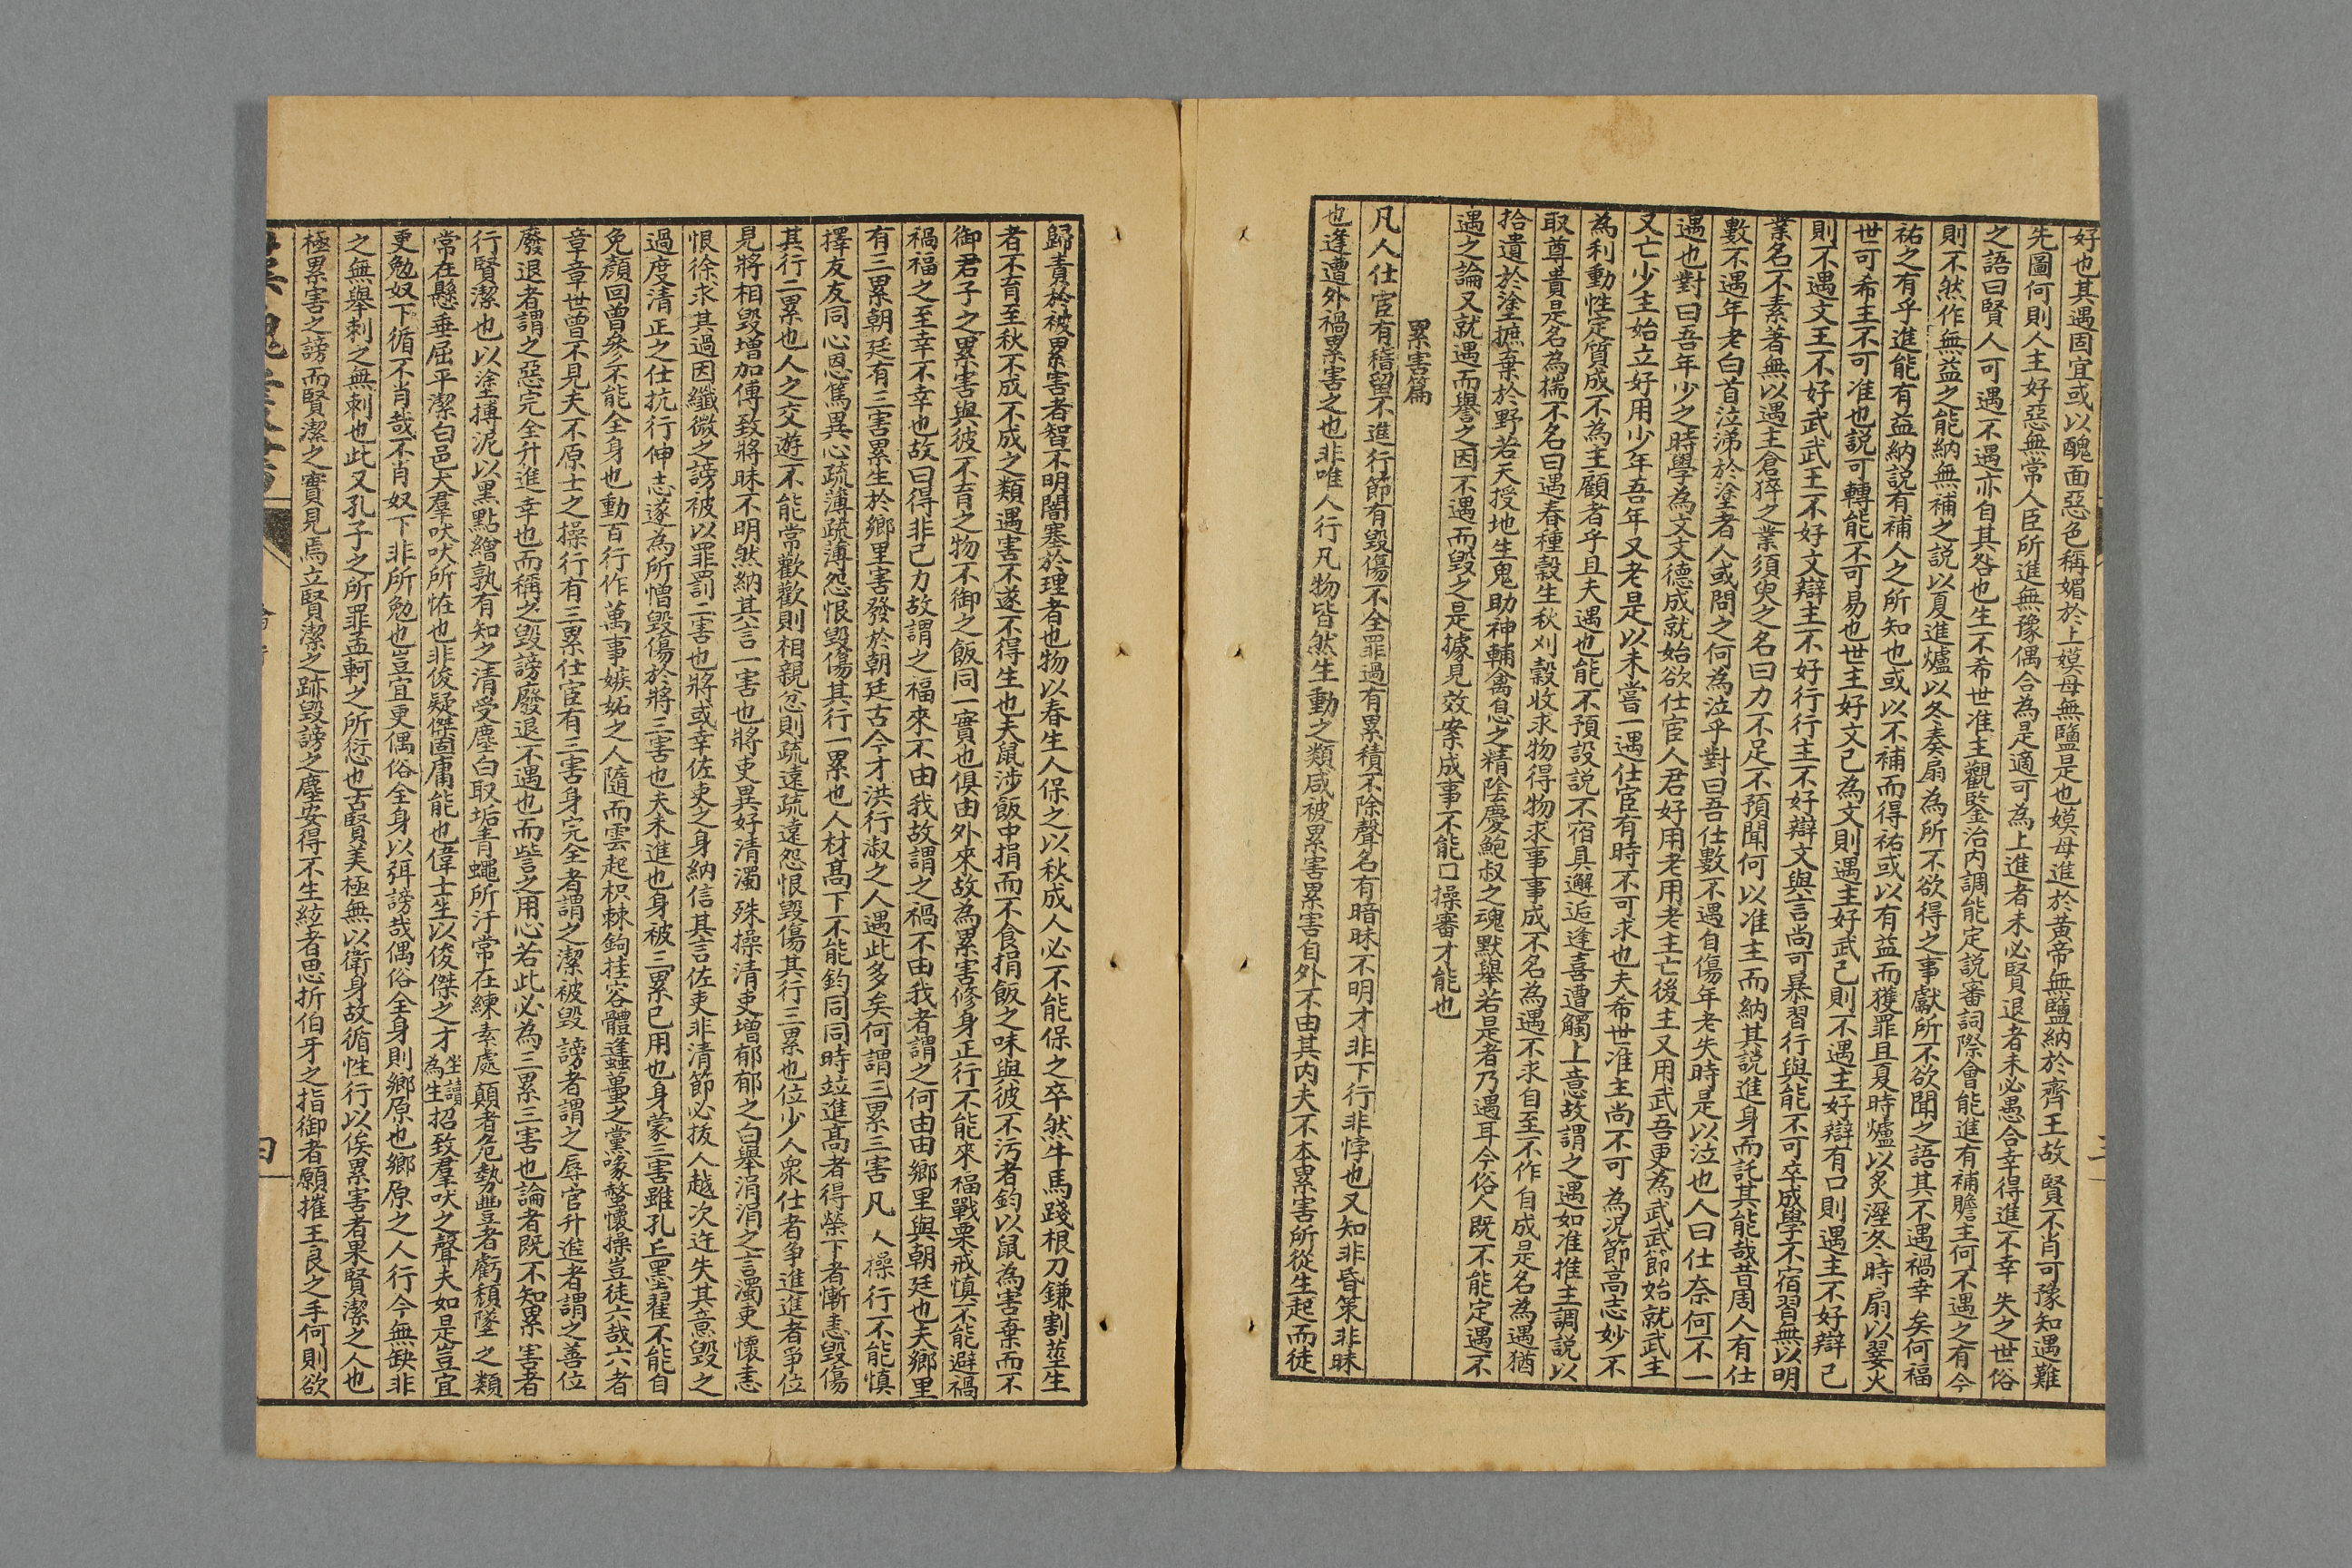 好也其遇固宜或以醜面惡色稱媚於上嫫母無鹽是也嫫母進於黃帝無鹽納於齊王故賢不肖可豫知遇難
先圖何則人主好惡無常人臣所進無豫偶合為是適可為上進者未必賢退者未必愚合幸得進不幸失之世俗
之語曰賢人可遇不遇亦自其咎也生不希世准主觀鑒治內調能定説審詞際會能進有補贍主何不遇之有今
則不然作無益之能納無補之説以夏進爐以冬奏扇為所不欲得之事獻所不欲聞之語其不遇禍幸矣何福
祐之有乎進能有益納説有補人之所知也或以不補而得祐或以有益而獲罪且夏時爐以炙溼冬時扇以翣火
世可希主不可准也説可轉能不可易也世主好文己為文則遇主好武己則不遇主好辯有口則遇主不好辯己
則不遇文王不好武武王不好文辯主不好行行主不好辯文與言尚可暴習行與能不可卒成學不宿習無以明
業名不素著無以遇主倉猝之業須臾之名曰力不足不預聞何以准主而納其説進身而託其能哉昔周人有仕
數不遇年老白首泣涕於塗者人或問之何為泣乎對曰吾仕數不遇自傷年老失時是以泣也人曰仕奈何不一
遇也對曰吾年少之時學為文文德成就始欲仕宦人君好用老用老主亡後主又用武吾更為武武節始就武主
又亡少主始立好用少年吾年又老是以未嘗一遇仕宦有時不可求也夫希世准主尚不可為況節高志妙不
為利動性定質成不為主顧者乎且夫遇也能不預設説不宿具邂逅逢喜遭觸上意故謂之遇如准推主調説以
取尊貴是名為揣不名曰遇春種穀生秋刈穀收求物得物求事事成不名為遇不求自至不作自成是名為遇猶
拾遺於塗摭棄於野若天授地生鬼助神輔禽息之精陰慶鮑叔之魂默舉若是者乃遇耳今俗人既不能定遇不
遇之論又就遇而譽之因不遇而毀之是據見效案成事不能口操審才能也
累害篇
凡人仕宦有稽留不進行節有毀傷不全罪過有累積不除聲名有暗昧不明才非下行非悖也又知非昏策非昧
也逢遭外禍累害之也非唯人行凡物皆然生動之類咸被累害累害自外不由其內夫不本累害所從生起而徒
歸責於被累害者智不明闇塞於理者也物以春生人保之以秋成人必不能保之卒然牛馬踐根刀鎌割莖生
者不育至秋不成不成之類遇害不遂不得生也夫鼠涉飯中捐而不食捐飯之味與彼不污者鈞以鼠為害棄而不
御君子之累害與彼不育之物不御之飯同一實也俱由外來故為累害修身正行不能來福戰栗戒慎不能避禍
禍福之至幸不幸也故曰得非己力故謂之福來不由我故謂之禍不由我者謂之何由由鄉里與朝廷也夫鄉里
有三累朝廷有三害累生於鄉里害發於朝廷古今才洪行淑之人遇此多矣何謂三累三害凡人操行不能慎
擇友友同心恩篤異心疏薄疏薄怨恨毀傷其行一累也人材高下不能鈞同同時竝進高者得榮下者慚恚毀傷
其行二累也人之交遊不能常歡歡則相親忿則疏遠疏遠怨恨毀傷其行三累也位少人衆仕者争進進者爭位
見將相毀增加傅致將昧不明然納其言一害也將吏異好清濁殊操清吏增郁郁之白舉涓涓之言濁吏懷恚
恨徐求其過因纖微之謗被以罪罰二害也將或幸佐吏之身納信其言佐吏非清節必拔人越次迕失其意毀之
過度清正之仕抗行伸志遂為所憎毀傷於將三害也夫未進也身被三累已用也身蒙三害雖孔丘墨翟不能自
免顏回曾參不能全身也動百行作萬事嫉妬之人隨而雲起枳棘鉤挂容體蠭蠆之黨啄螫懷操豈徒六哉六者
章章世曾不見夫不原士之操行有三累仕宦有三害身完全者謂之潔被毀謗者謂之辱官升進者謂之善位
廢退者謂之惡完全升進幸也而稱之毀謗廢退不遇也而訾之用心若此必為三累三害也論者既不知累害者
行賢潔也以塗搏泥以黑點繒孰有知之清受塵白取垢青蠅所汙常在練素處顛者危勢豐者虧頹墜之類
常在懸垂屈平潔白邑犬羣吠吠所怪也非俊疑傑固庸能也偉士坐以俊傑之才坐讀為生招致羣吠之聲夫如是豈宜
更勉奴下循不肖哉不肖奴下非所勉也豈宜更偶俗全身以弭謗哉偶俗全身則鄉原也鄉原之人行今無缺非
之無舉刺之無刺也此又孔子之所罪孟軻之所愆也古賢美極無以衛身故循性行以俟累害者果賢潔之人也
極累害之謗而賢潔之實見焉立賢潔之跡毀謗之塵安得不生絃者思折伯牙之指御者願摧王良之手何則欲